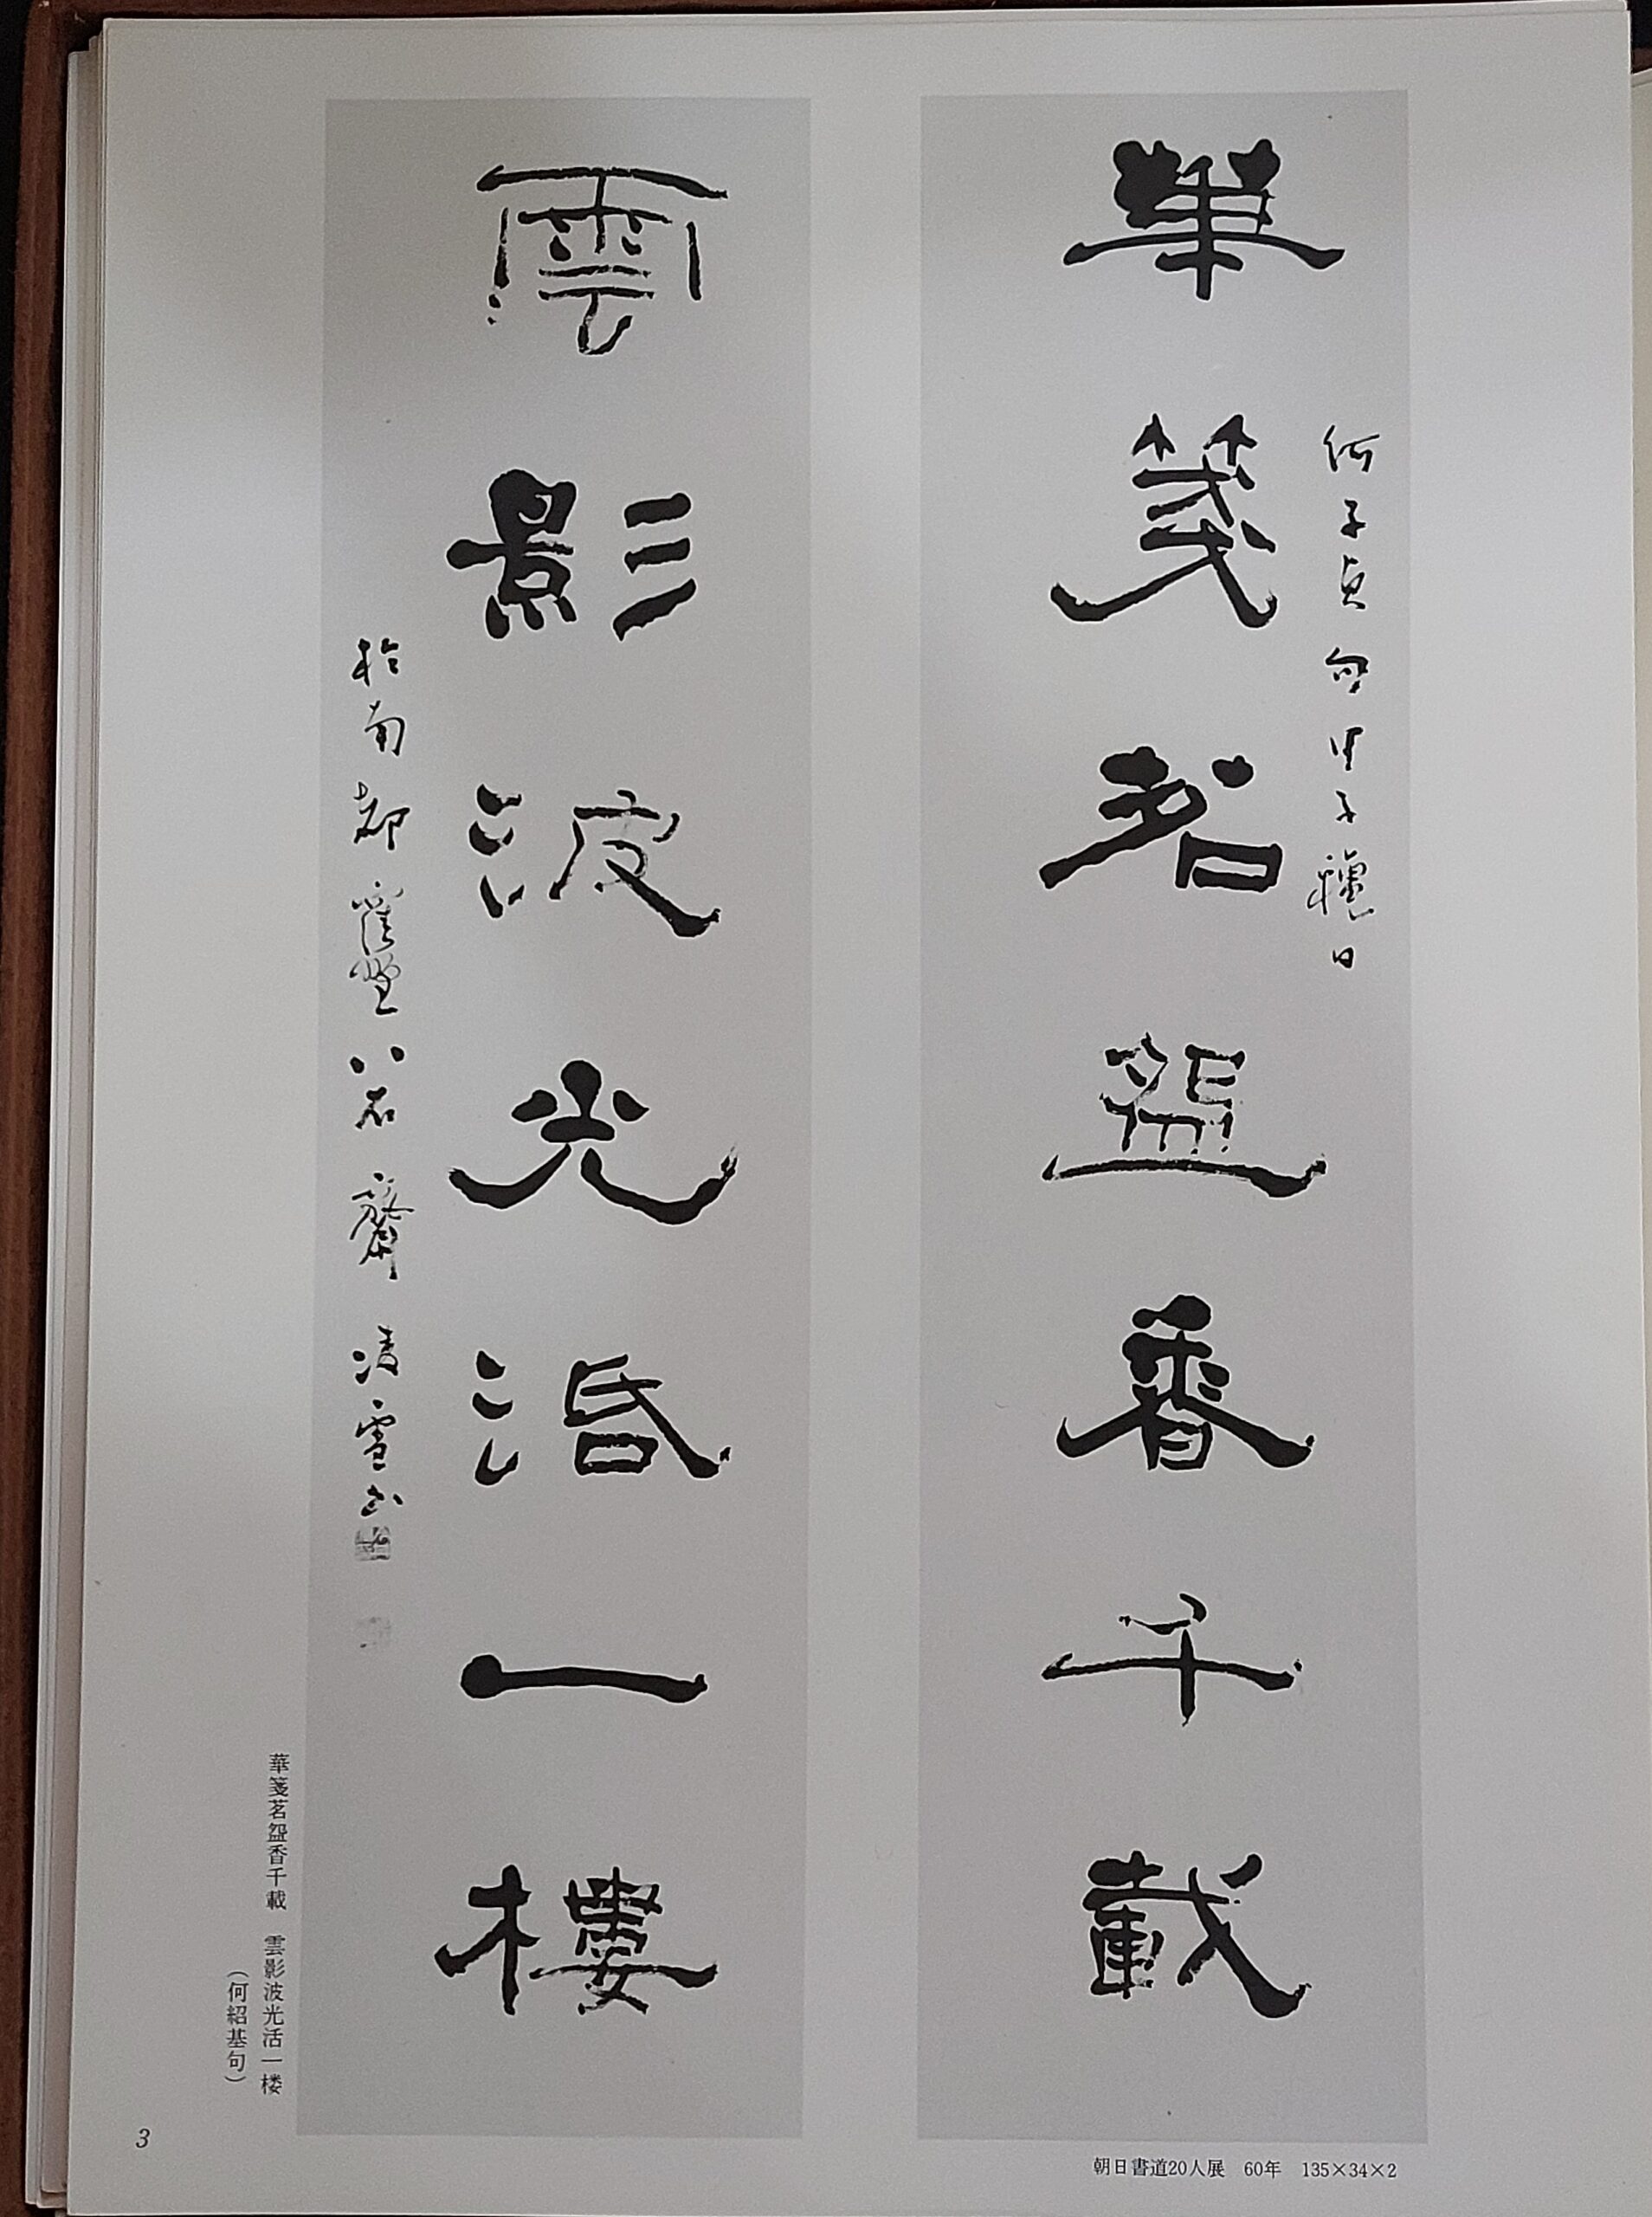 華箋茗盌香千載
何子貞句甲子穐日
雲影波光活一樓
於南都寉埜八石齋凌雪山
華箋茗盌香千載　雲影波光活一楼
（何紹基句）
朝日書道20人展　60年　135×34×2
3